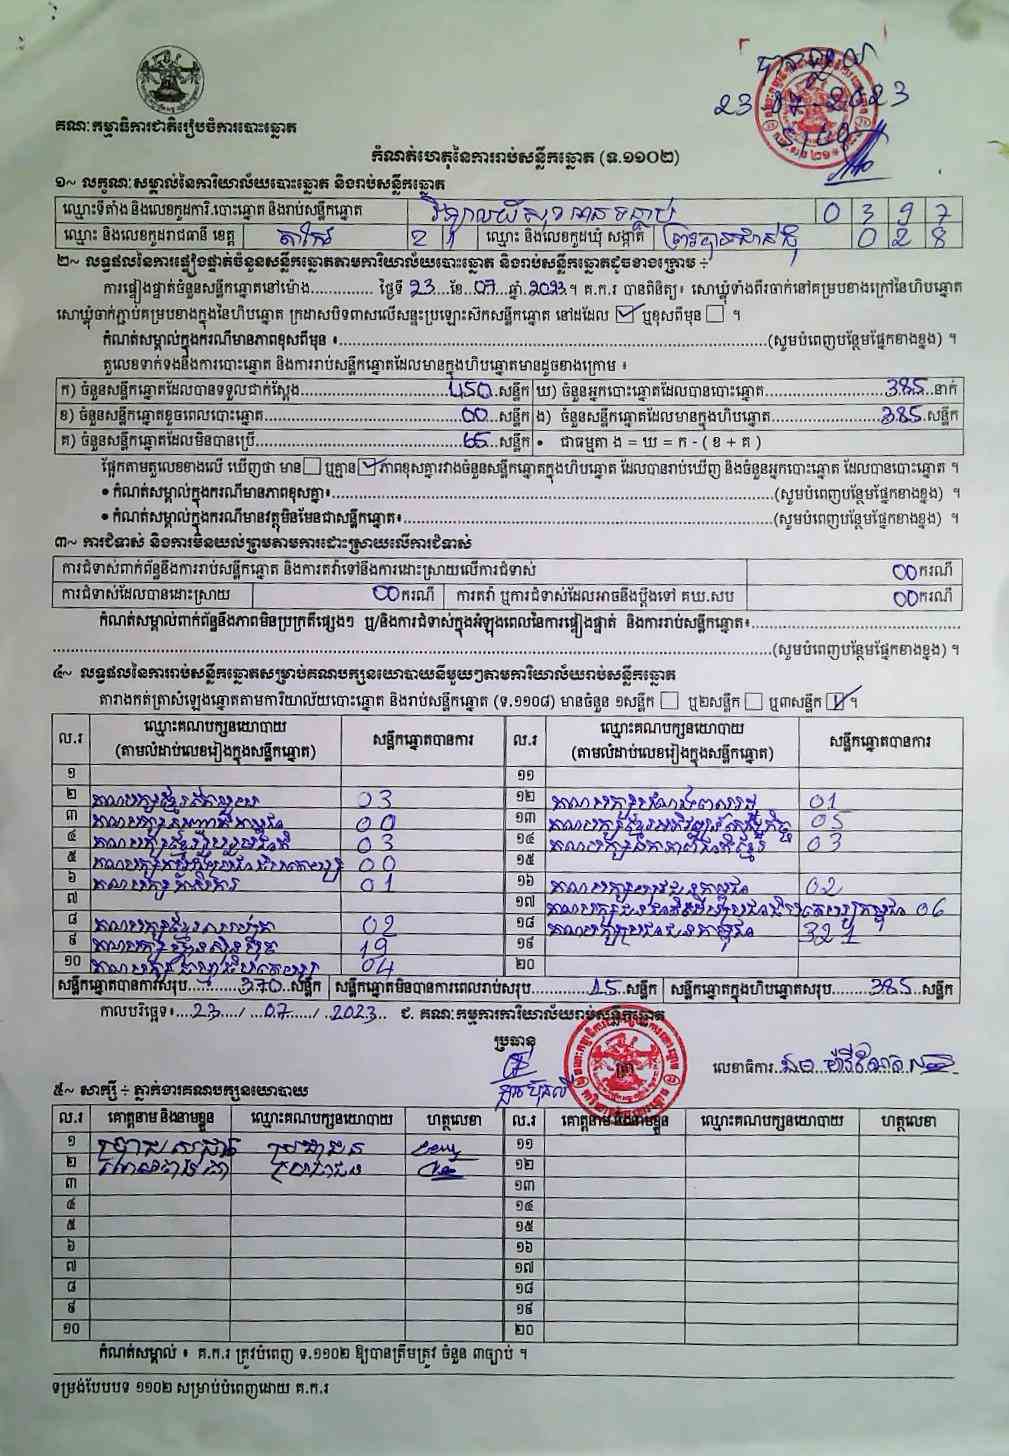 គណៈកម្មាធិការជាតិរៀបចំការបោះឆ្នោត
បានឃើញ
23-07-2023
កំណត់ហេតុនៃការរាប់សន្លឹកឆ្នោត (ទ.១១០២)
១~ លក្ខណៈសម្គាល់នៃការិយាល័យបោះឆ្នោត និងរាប់សន្លឹកឆ្នោត
ឈ្មោះទីតាំង និងលេខកូដការិ.បោះឆ្នោត និងរាប់សន្លឹកឆ្នោត 0 3 9 7
ឈ្មោះ និងលេខកូដរាជធានី ខេត្ត តាកែវ 2 1 ឈ្មោះ និងលេខកូដឃុំ សង្កាត់ ព្រៃ 0 2 8
២~ លទ្ធផលនៃការផ្ទៀងផ្ទាត់ចំនួនសន្លឹកឆ្នោតតាមការិយាល័យបោះឆ្នោត និងរាប់សន្លឹកឆ្នោតដូចខាងក្រោម ÷
ការផ្ទៀងផ្ទាត់ចំនួនសន្លឹកឆ្នោតនៅម៉ោង.............. ថ្ងៃទី 23 ...ខែ.07...ឆ្នាំ.2023.។ គ.ក.រ បានពិនិត្យ៖ សោឃ្លុំទាំងពីរចាក់នៅគម្របខាងក្រៅនៃហិបឆ្នោត
សោឃ្លុំចាក់ភ្ជាប់គម្របខាងក្នុងនៃហិបឆ្នោត ក្រដាសបិទពាសលើសន្ទះប្រឡោះសិកសន្លឹកឆ្នោត នៅដដែល ☑ ឬខុសពីមុន ☐ ។
កំណត់សម្គាល់ក្នុងករណីមានភាពខុសពីមុន ៖..........(សូមបំពេញបន្ថែមផ្នែកខាងខ្នង) ។
តួលេខទាក់ទងនឹងការបោះឆ្នោត និងការរាប់សន្លឹកឆ្នោតដែលមានក្នុងហិបឆ្នោតមានដូចខាងក្រោម ៖
ក) ចំនួនសន្លឹកឆ្នោតដែលបានទទួលជាក់ស្តែង..........450..សន្លឹក ឃ) ចំនួនអ្នកបោះឆ្នោតដែលបានបោះឆ្នោត..........385..នាក់
ខ) ចំនួនសន្លឹកឆ្នោតខូចពេលបោះឆ្នោត..........00...សន្លឹក ង) ចំនួនសន្លឹកឆ្នោតដែលមានក្នុងហិបឆ្នោត..........385.សន្លឹក
គ) ចំនួនសន្លឹកឆ្នោតដែលមិនបានប្រើ..........65...សន្លឹក • ជាធម្មតា ង = ឃ = ក - ( ខ + គ )
ផ្អែកតាមតួលេខខាងលើ ឃើញថា មាន ☐ ឬគ្មាន ☑ ភាពខុសគ្នារវាងចំនួនសន្លឹកឆ្នោតក្នុងហិបឆ្នោត ដែលបានរាប់ឃើញ និងចំនួនអ្នកបោះឆ្នោត ដែលបានបោះឆ្នោត ។
• កំណត់សម្គាល់ក្នុងករណីមានភាពខុសគ្នា៖..........(សូមបំពេញបន្ថែមផ្នែកខាងខ្នង) ។
• កំណត់សម្គាល់ក្នុងករណីមានវត្ថុមិនមែនជាសន្លឹកឆ្នោត៖..........(សូមបំពេញបន្ថែមផ្នែកខាងខ្នង) ។
៣~ ការជំទាស់ និងការមិនយល់ព្រមតាមការដោះស្រាយលើការជំទាស់
ការជំទាស់ពាក់ព័ន្ធនឹងការរាប់សន្លឹកឆ្នោត និងការតវ៉ាទៅនឹងការដោះស្រាយលើការជំទាស់ 00ករណី
ការជំទាស់ដែលបានដោះស្រាយ 00ករណី ការតវ៉ា ឬការជំទាស់ដែលអាចនឹងប្តឹងទៅ គឃ.សប 00ករណី
កំណត់សម្គាល់ពាក់ព័ន្ធនឹងភាពមិនប្រក្រតីផ្សេងៗ ឬ/និងការជំទាស់ក្នុងអំឡុងពេលនៃការផ្ទៀងផ្ទាត់ និងការរាប់សន្លឹកឆ្នោត៖..........
..........(សូមបំពេញបន្ថែមផ្នែកខាងខ្នង) ។
៤~ លទ្ធផលនៃការរាប់សន្លឹកឆ្នោតសម្រាប់គណបក្សនយោបាយនីមួយៗតាមការិយាល័យរាប់សន្លឹកឆ្នោត
តារាងកត់ត្រាសំឡេងឆ្នោតតាមការិយាល័យបោះឆ្នោត និងរាប់សន្លឹកឆ្នោត (ទ.១១០៨) មានចំនួន ១សន្លឹក ☐ ឬ២សន្លឹក ☐ ឬ៣សន្លឹក ☑ ។
ល.រ ឈ្មោះគណបក្សនយោបាយ (តាមលំដាប់លេខរៀងក្នុងសន្លឹកឆ្នោត) សន្លឹកឆ្នោតបានការ ល.រ ឈ្មោះគណបក្សនយោបាយ (តាមលំដាប់លេខរៀងក្នុងសន្លឹកឆ្នោត) សន្លឹកឆ្នោតបានការ
១ ១១
២ គណបក្ស 03 ១២ គណបក្ស 01
៣ គណបក្ស 00 ១៣ គណបក្សខ្មែរអភិវឌ្ឍន៍សេដ្ឋកិច្ច 05
៤ គណបក្សខ្មែររួបរួមជាតិ 03 ១៤ គណបក្សឯកភាពជាតិខ្មែរ 03
៥ គណបក្ស 00 ១៥
៦ គណបក្សកសិករ 01 ១៦ គណបក្សយុវជនកម្ពុជា 02
៧ ១៧ គណបក្ស 06
៨ គណបក្ស 02 ១៨ គណបក្សប្រជាជនកម្ពុជា 321
៩ គណបក្សហ្វ៊ុនស៊ិនប៉ិច 19 ១៩
១០ គណបក្ស 04 ២០
សន្លឹកឆ្នោតបានការសរុប..........370..សន្លឹក សន្លឹកឆ្នោតមិនបានការពេលរាប់សរុប..........15..សន្លឹក សន្លឹកឆ្នោតក្នុងហិបឆ្នោតសរុប..........385..សន្លឹក
កាលបរិច្ឆេទ៖...23..../...07...../...2023.. ជ. គណៈកម្មការការិយាល័យរាប់សន្លឹកឆ្នោត
ប្រធាន
លេខាធិការ
៥~ សាក្សី ÷ ភ្នាក់ងារគណបក្សនយោបាយ
ល.រ គោត្តនាម និងនាមខ្លួន ឈ្មោះគណបក្សនយោបាយ ហត្ថលេខា ល.រ គោត្តនាម និងនាមខ្លួន ឈ្មោះគណបក្សនយោបាយ ហត្ថលេខា
១ ប្រជាជន ១១
២ ប្រជាជន ១២
៣ ១៣
៤ ១៤
៥ ១៥
៦ ១៦
៧ ១៧
៨ ១៨
៩ ១៩
១០ ២០
កំណត់សម្គាល់ ៖ គ.ក.រ ត្រូវបំពេញ ទ.១១០២ ឱ្យបានត្រឹមត្រូវ ចំនួន ៣ច្បាប់ ។
ទម្រង់បែបបទ ១១០២ សម្រាប់បំពេញដោយ គ.ក.រ